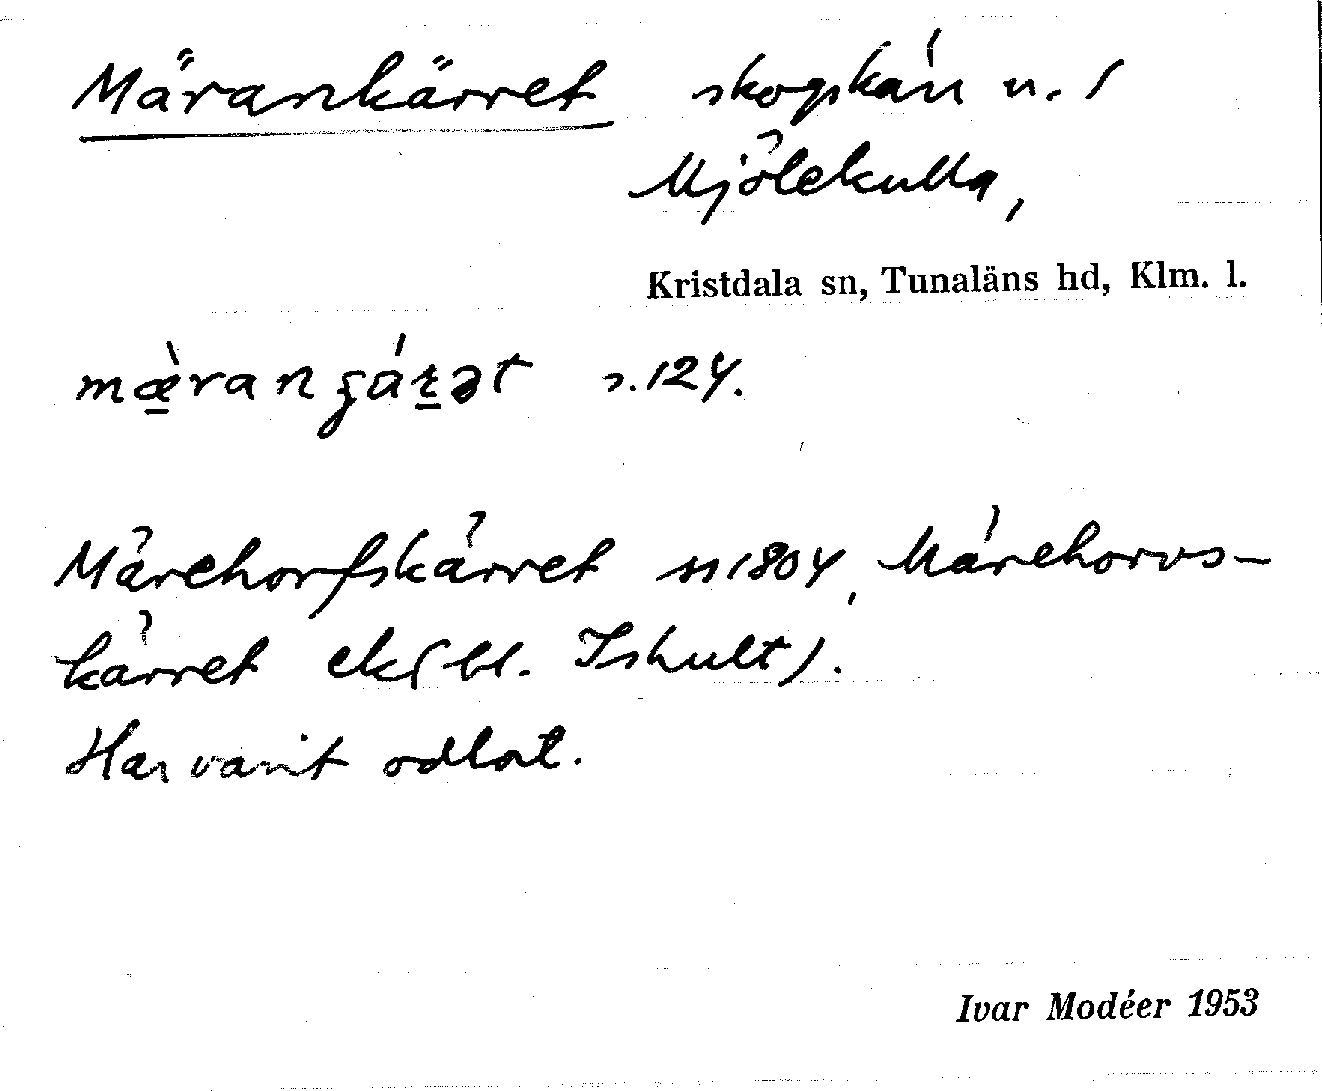 Märankärret skogskärr u. /
Mjölekulla,
Kristdala sn, Tunaläns hd, Klm. l.
mæ̱̀ran ʒáɽ̱ət s. 124.
Märehorfskärret 1804, Märehorvs-
kärret ek (bl. Ishult).
Har varit odlat.
Ivar Modéer 1953